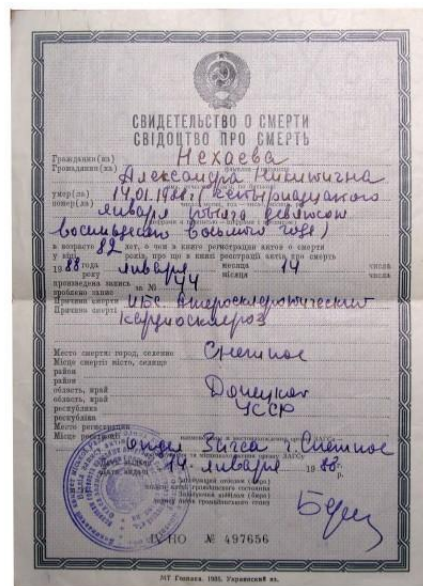 СВИДЕТЕЛЬСТВО О СМЕРТИ
СВІДОЦТВО ПРО СМЕРТЬ
Гражданин(ка) Нехаева
Громадянин(ка)
Александра Никитична
умер(ла) 14.01.1988г (четырнадцатого
помер(ла) января тысяча девятсот
восемьдесят восьмого года)
в возрасте 82 лет, о чем в книге регистрации актов о смерти
у віці років, про що в книзі реєстрації актів про смерть
1988 года января месяца 14 числа
року місяця числа
произведена запись за № 44
проблено запис
Причина смерти ИБС. Атеросклеротический
Причина смерті кардиосклероз
Место смерти: город, селение Снежное
Місце смерті: місто, селище
район
район
область, край Донецкая
область, край
республика УССР
республіка
Место регистрации
Місце реєстрації отдел Загса г. Снежное
14 января 1988 г.
р.
IV-НО № 497656
МТ Гознака. 1985.